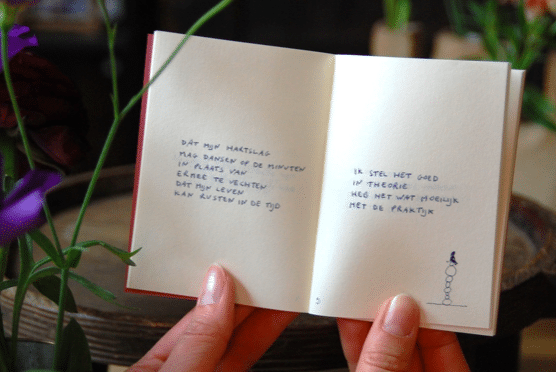 DAT MIJN HARTSLAG
MAG DANSEN OP DE MINUTEN
IN PLAATS VAN
ERMEE TE VECHTEN
DAT MIJN LEVEN
KAN RUSTEN IN DE TIJD
IK STEL HET GOED
IN THEORIE
HEB HET WAT MOEILIJK
MET DE PRAKTIJK